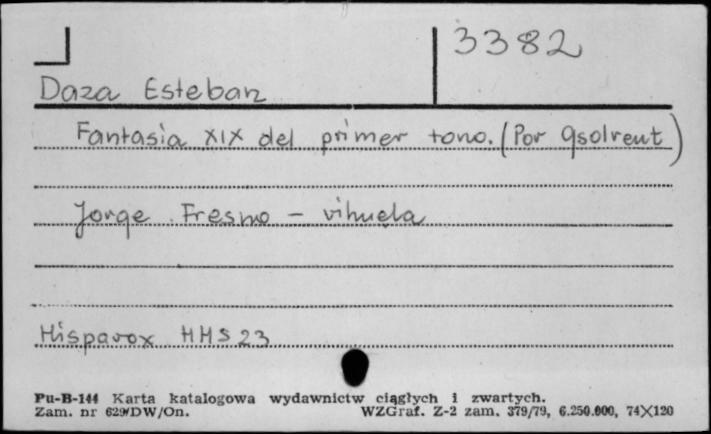 3382
Daza Esteban
Fantasia XIX del primer tono. (Por Gsolreut)
Jorge Fresno - vihuela
Hispavox HHS 23
Pu-B-144 Karta katalogowa wydawnictw ciągłych i zwartych.
Zam. nr 629/DW/On. WZGraf. Z-2 zam. 379/79, 6.250.000, 74X120